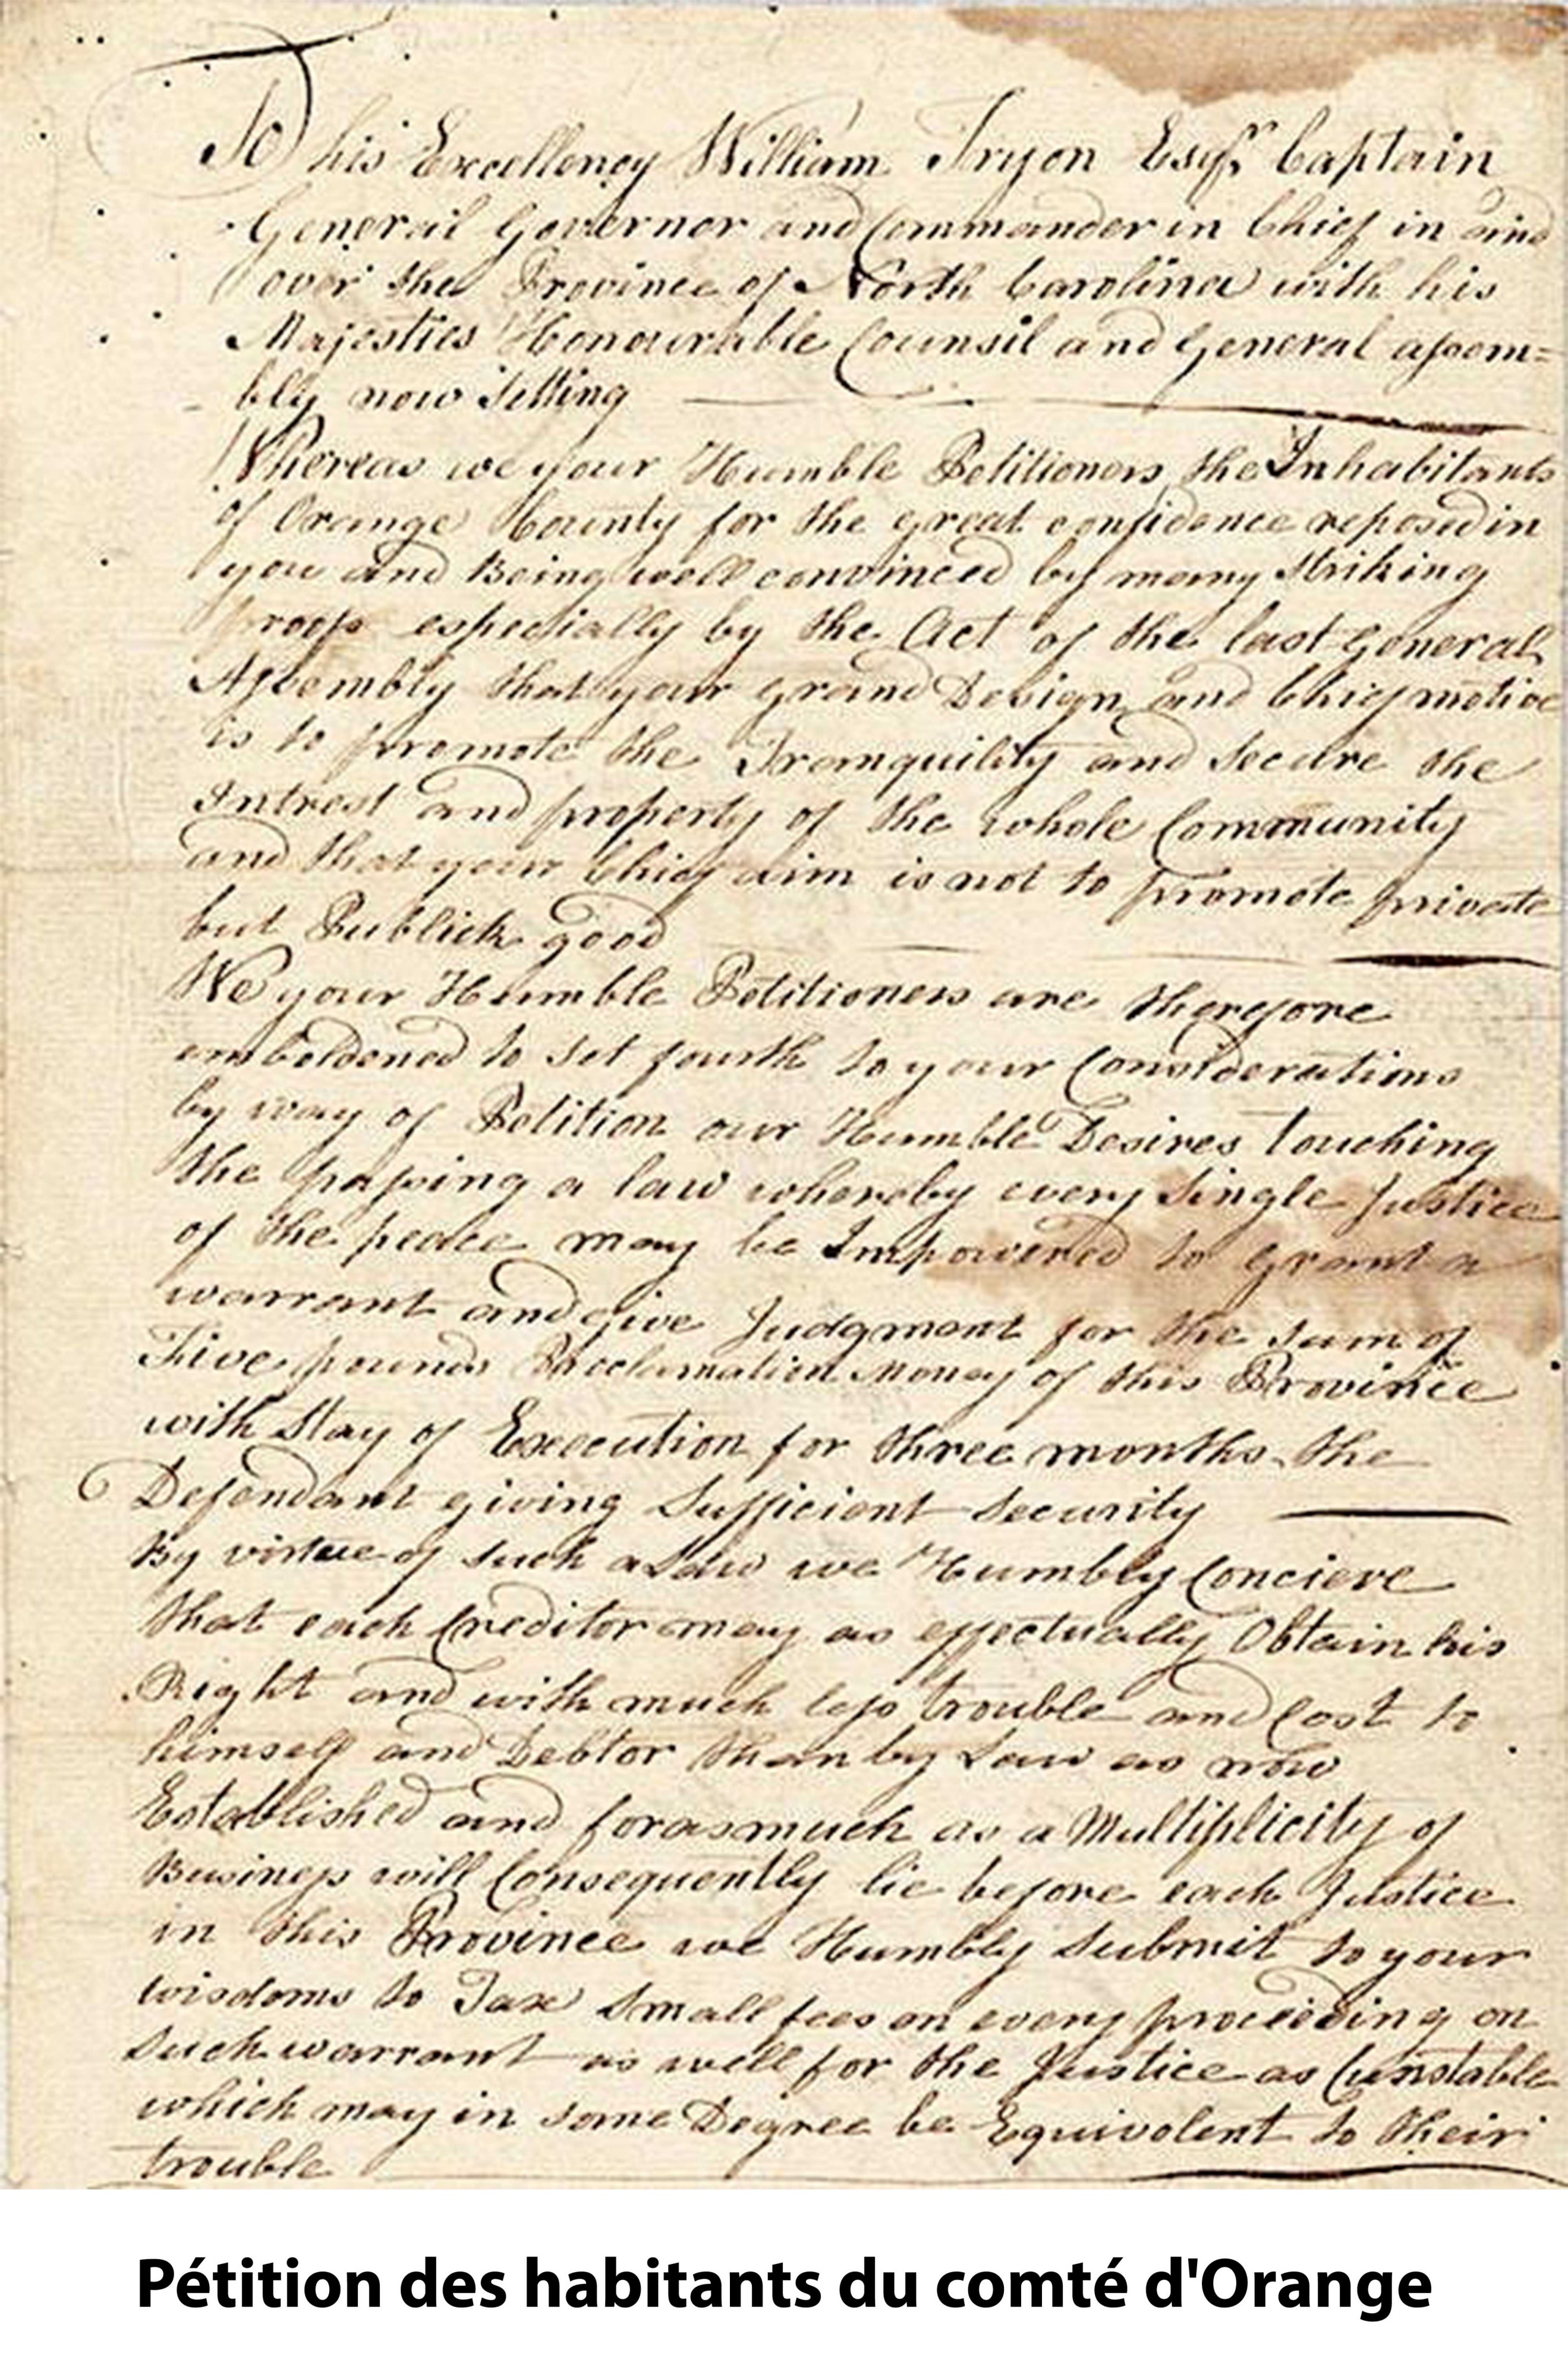 To his Excellency William Tryon Esqr. Captain
General Governor and Commander in Chief in and
over the Province of North Carolina with his
Majesties Honourable Counsil and General assem=
bly now Setting
Whereas we your Humble Petitioners the Inhabitants
of Orange County for the great confidence reposed in
you and Being well convinced by many Striking
proofs especially by the Act of the last General
Assembly that your grand Design and Chief motive
is to promote the Tranquility and Secure the
Intrest and property of the whole Community
and that your Chief aim is not to promote private
but Publick good
We your Humble Petitioners are therefore
emboldened to set fourth to your Considerations
by way of Petition our Humble Desires touching
the passing a law whereby every Single Justice
of the peace may be Impowered to Grant a
warrant and give Judgment for the Sum of
Five pounds Proclamation Money of this Province
with Stay of Execution for three months the
Defendant giving Sufficient Security
By virtue of Such a Law we Humbly Conciere
that each Creditor may as effectually Obtain his
Right and with much less trouble and Cost to
himself and Debtor than by Law as now
Established and forasmuch as a Multiplicity of
Business will Consequently lie before each Justice
in this Province we Humbly Submit to your
wisdoms to Tax Small fees on every proceeding on
Such warrant as well for the Justice as Cunstable
which may in some Degree be Equivolent to their
trouble
Pétition des habitants du comté d'Orange